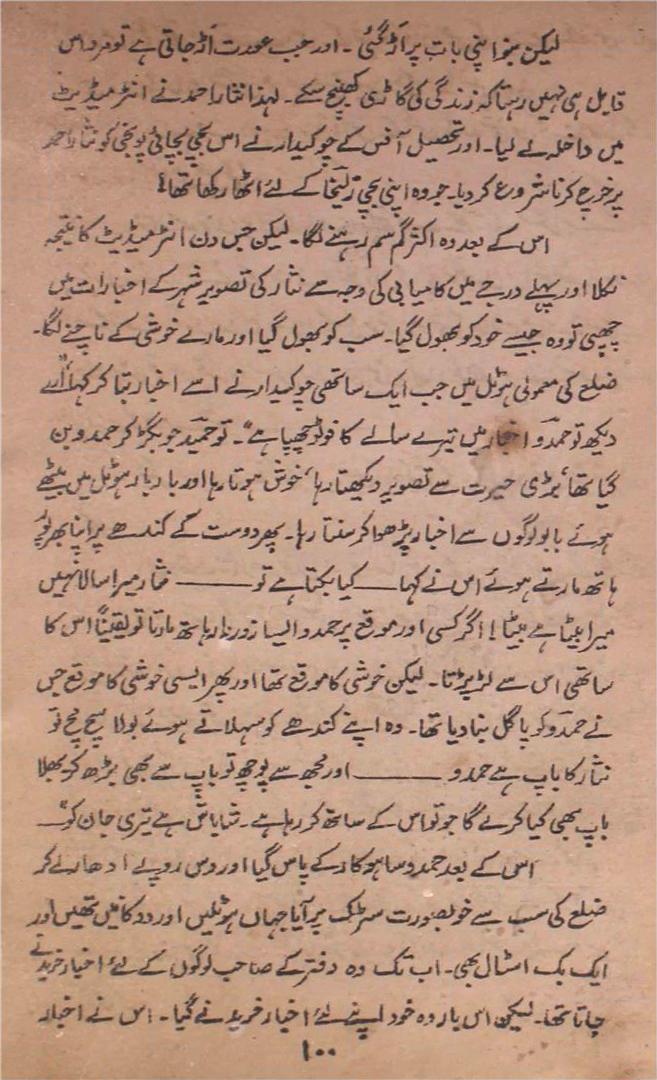 لیکن بنّو اپنی بات پر اَڑ گئی ۔ اور جب عورت اَڑ جاتی ہے تو مرد اس
قابل ہی نہیں رہتا کہ زندگی کی گاڑی کھینچ سکے ۔ لہذا نثار احمد نے انٹرمیڈیٹ
میں داخلہ لے لیا ۔ اور تحصیل آفس کے چوکیدار نے اس بچی بچائی پونجی کو نثار احمد
پر خرچ کرنا شروع کر دیا ۔ جو وہ اپنی بچی زلیخا کے لئے اٹھا رکھا تھا ؟
اس کے بعد وہ اکثر گم سم رہنے لگا ۔ لیکن جس دن انٹرمیڈیٹ کا نتیجہ
نکلا اور پہلے درجے میں کامیابی کی وجہ سے نثار کی تصویر شہر کے اخبارات میں
چھپی تو وہ جیسے خود کو بھول گیا ۔ سب کو بھول گیا اور مارے خوشی کے ناچنے لگا ۔
ضلع کی معمولی ہوٹل میں جب ایک ساتھی چوکیدار نے اسے اخبار بتا کر کہا “ارے
دیکھ تو حمدو اخبار میں تیرے سالے کا فوٹو چھپا ہے” ۔ تو حمید جو بگڑ کر حمدو بن
گیا تھا ‘ بڑی حیرت سے تصویر دیکھتا رہا ‘ خوش ہوتا رہا اور بار بار ہوٹل میں بیٹھے
ہوئے بابو لوگوں سے اخبار پڑھوا کر سنتا رہا ۔ پھر دوست کے کندھے پر اپنا بھرپور
ہاتھ مارتے ہوئے اس نے کہا ـــ کیا بکتا ہے تو ـــــ نثار میرا سالا نہیں
میرا بیٹا ہے بیٹا ! اگر کسی اور موقع پر حمدو ایسا زوردار ہاتھ مارتا تو یقیناً اس کا
ساتھی اس سے لڑ پڑتا ۔ لیکن خوشی کا موقع تھا اور پھر ایسی خوشی کا موقع جس
نے حمدو کو پاگل بنا دیا تھا ۔ وہ اپنے کندھے کو سہلاتے ہوئے بولا سچ مچ تو
نثار کا باپ ہے حمدو ـــــ اور مجھ سے پوچھ تو باپ سے بھی بڑھ کر بھلا
باپ بھی کیا کرے گا جو تو اس کے ساتھ کر رہا ہے ۔ شاباش ہے تیری جان کو” ـــ
اس کے بعد حمدو ساہوکار کے پاس گیا اور دس روپے ادھار لے کر
ضلع کی سب سے خوبصورت سڑک پر آیا جہاں ہوٹلیں اور دوکانیں تھیں اور
ایک بک اسٹال بھی ۔ اب تک وہ دفتر کے صاحب لوگوں کے لئے اخبار خریدنے
جاتا تھا ۔ لیکن اس بار وہ خود اپنے لئے اخبار خریدنے گیا ۔ اس نے اخبار
۱۰۰